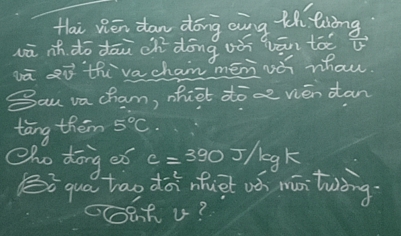 Hai viên đạn đồng cùng khí lượng
và nh.độ đầu ch.động với vận tốc v⃗
và 2v⃗ thì va chạm mềm với nhau.
Sau va chạm, nhiệt độ 2 viên đạn
tăng thêm 5°C.
Cho đồng có c = 390 J/kgK
Bỏ qua trao đổi nhiệt với môi trường.
Tính v?